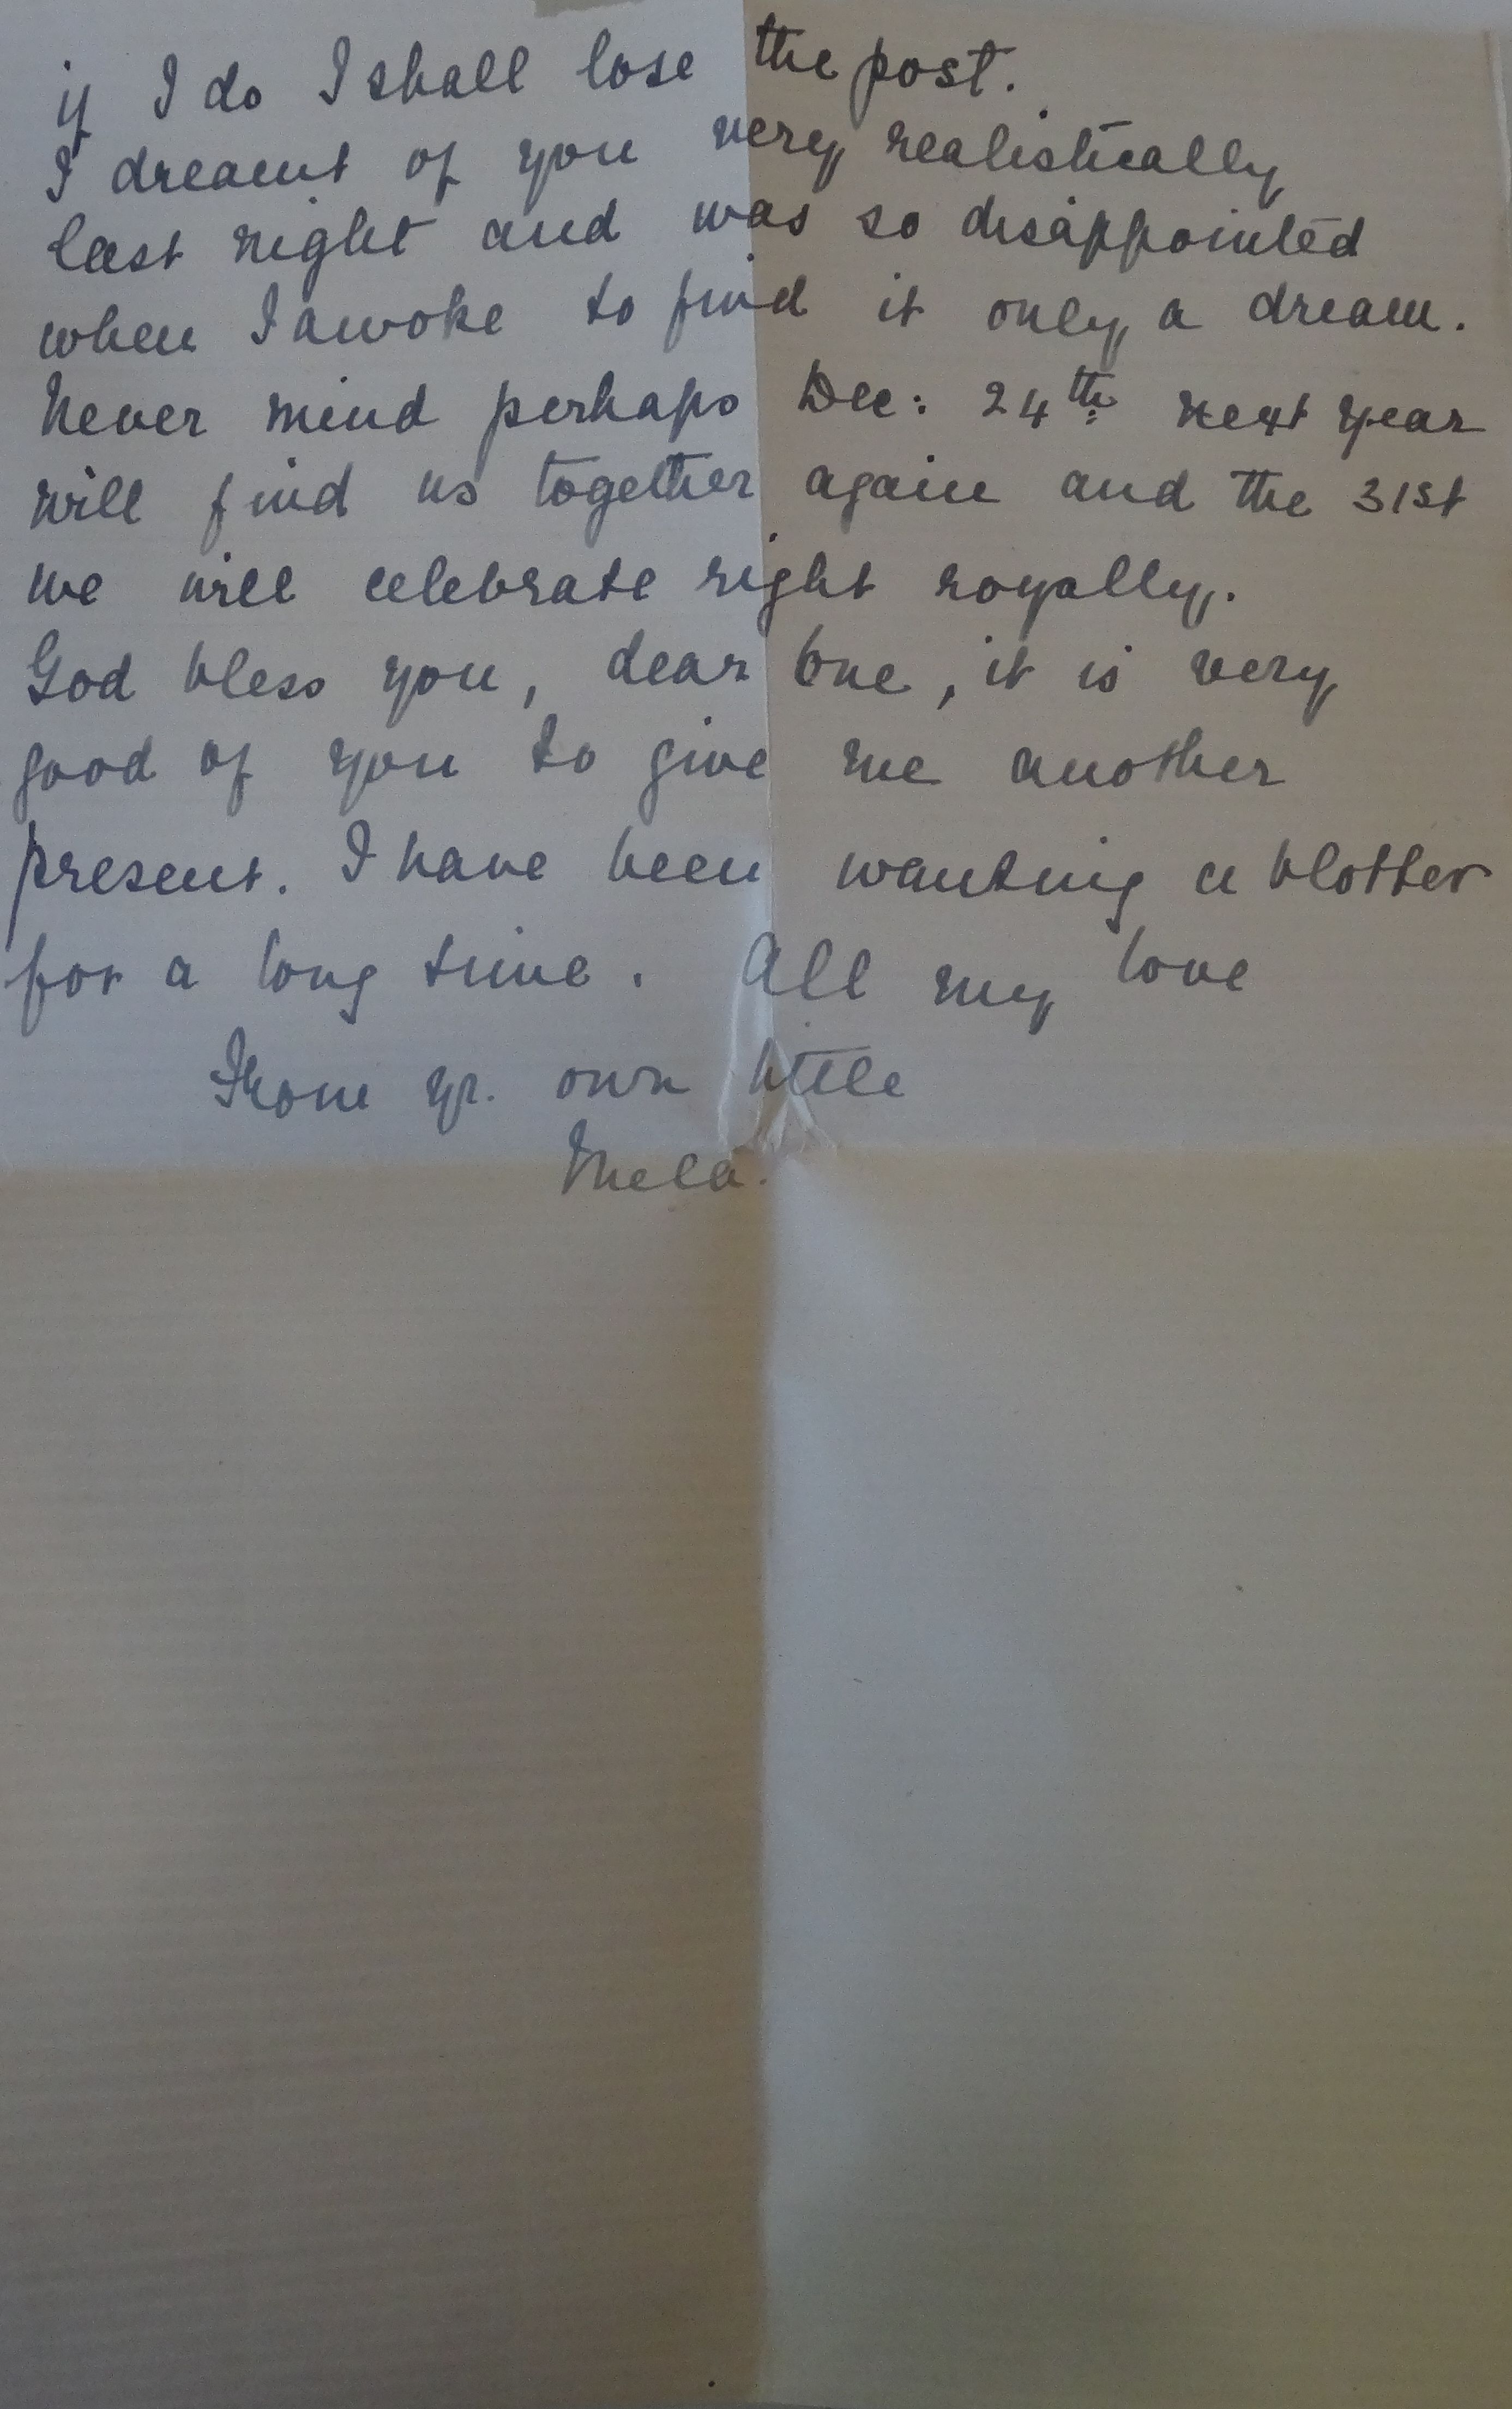 if I do I shall lose the post.
I dreamt of you very realistically
last night and was so disappointed
when I awoke to find it only a dream.
Never mind perhaps Dec: 24th next year
will find us together again and the 31st
we will celebrate right royally.
God bless you, dear one, it is very
good of you to give me another
present. I have been wanting a blotter
for a long time. All my love
From yr. own little
Mela.